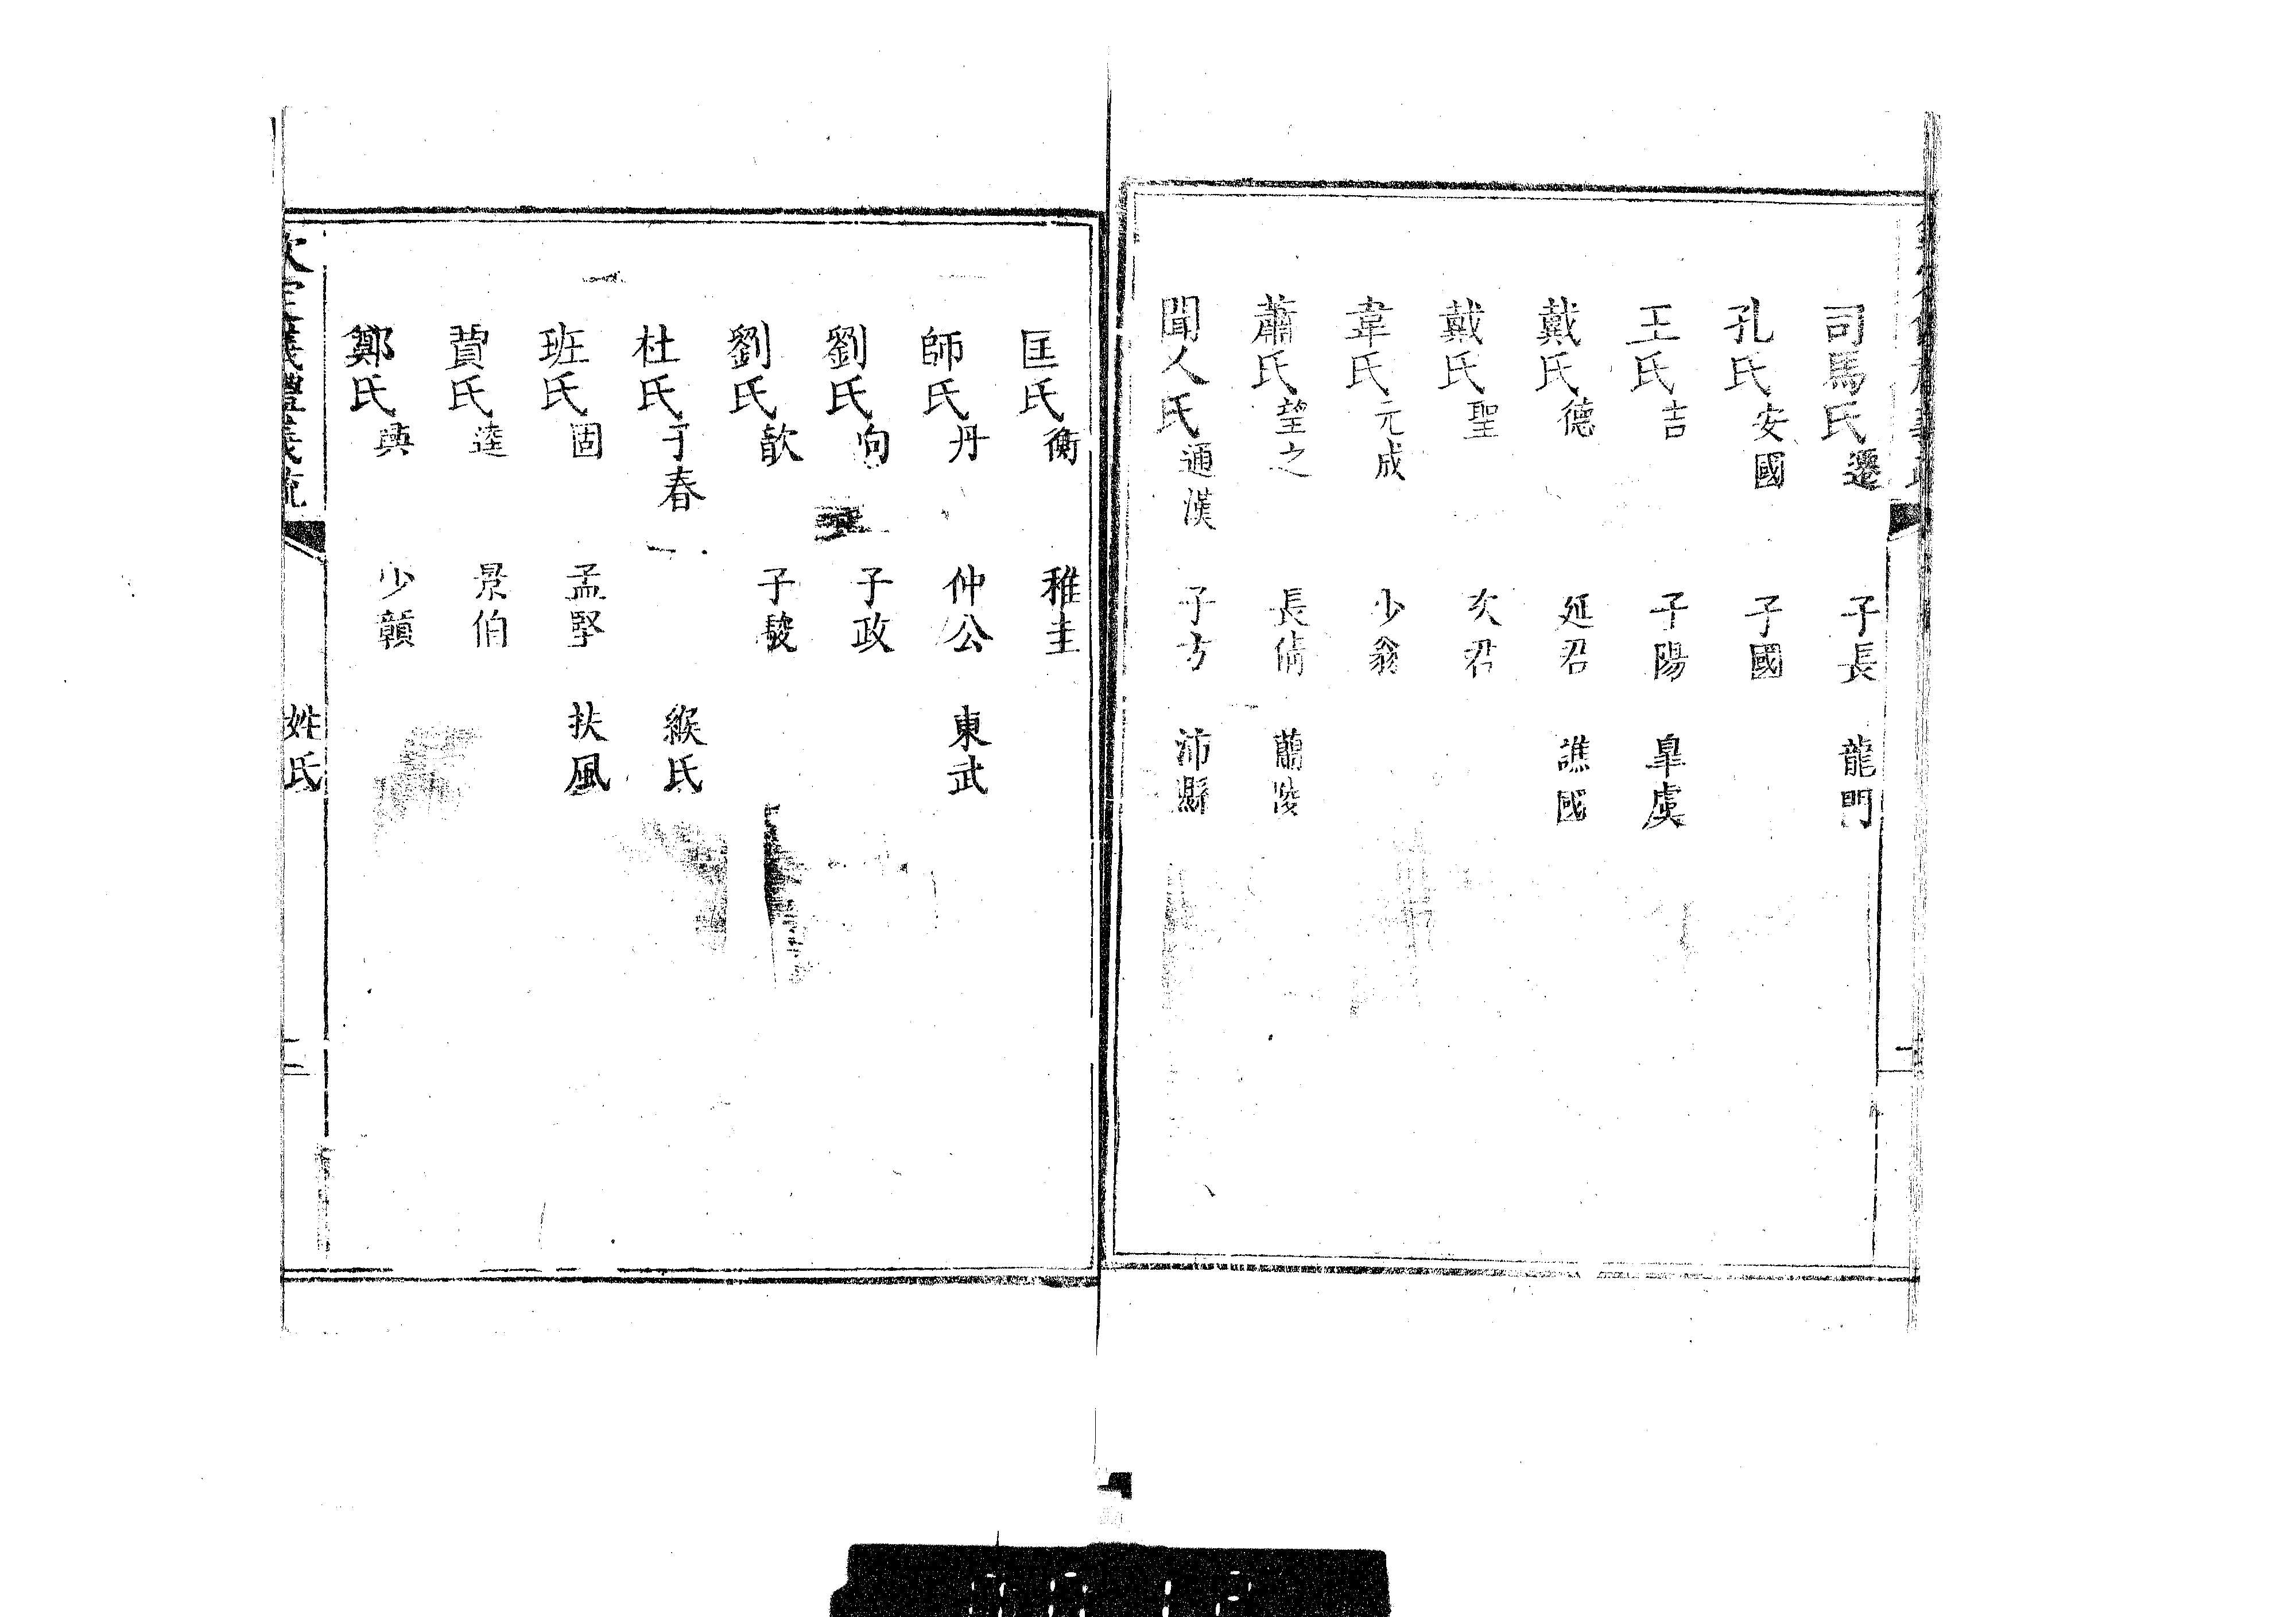 司馬氏遷 子長 龍門
孔氏安國 子國
王氏吉 子陽 臯虞
戴氏德 延君 譙國
戴氏聖 次君
韋氏元成 少翁
蕭氏望之 長倩 蘭陵
聞人氏通漢 子方 沛縣
匡氏衡 稚圭
師氏丹 仲公 東武
劉氏向 子政
劉氏歆 子駿
杜氏子春 緱氏
班氏固 孟堅 扶風
賈氏逵 景伯
鄭氏興 少贛
欽定儀禮義疏 姓氏 二